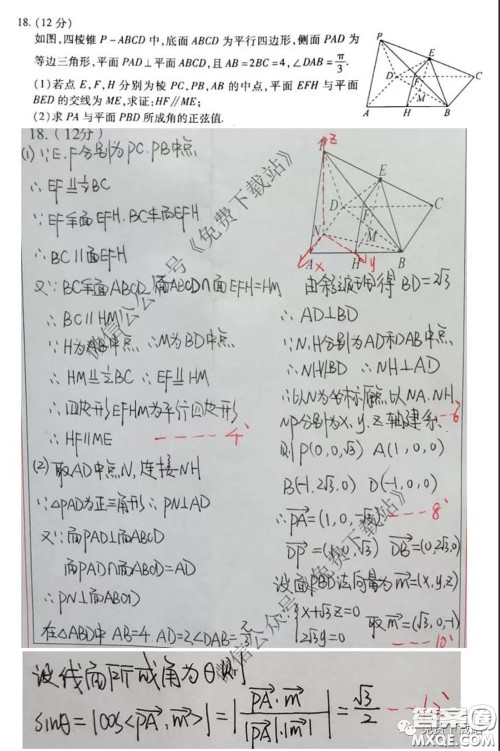 18.(12分)
如图,四棱锥P-ABCD中,底面ABCD为平行四边形,侧面PAD为
等边三角形,平面PAD⊥平面ABCD,且AB=2BC=4,∠DAB=π/3.
(1)若点E,F,H分别为棱PC,PB,AB的中点,平面EFH与平面
BED的交线为ME,求证:HF∥ME;
(2)求PA与平面PBD所成角的正弦值.
P
E
D
C
F
M
A
H
B
18.(12分)
(1)∵E.F分别为PC.PB中点
∴EF∥=½BC
∵EF⊂面EFH.BC⊄面EFH
∴BC∥面EFH
又∵BC⊂面ABCD 面ABCD∩面EFH=HM
∴BC∥HM
∵H为AB中点 ∴M为BD中点
∴HM∥=½BC ∴EF∥=HM
∴四边形EFHM为平行四边形
∴HF∥ME ----4'
(2)取AD中点N,连接NH
∵△PAD为正三角形∴PN⊥AD
又∵面PAD⊥面ABCD
面PAD∩面ABCD=AD
∴PN⊥面ABCD
在△ABD中 AB=4 AD=2,∠DAB=π/3
z
E
D
F
C
N
M
A
H
B
x
y
由余弦定理得BD=2√3
∴AD⊥BD
∵N.H分别为AD和AB中点
∴NH∥BD ∴NH⊥AD
∴以N为坐标原点,以NA.NH.
NP分别为x,y,z轴建系 --6'
则P(0,0,√3) A(1,0,0)
B(-1,2√3,0) D(-1,0,0)
∴PA→=(1,0,-√3) ---8'
DP→=(1,0,√3) DB→=(0,2√3,0)
设面PBD法向量为m→=(x,y,z)
{x+√3z=0
2√3y=0 取m→=(√3,0,-1)
---10'
设线面所成角为θ则
sinθ=|cos<PA→,m→>|=|PA→·m→/|PA→|·|m→||=√3/2 --12'
微信公众号《免费下载站》
微信公众号《免费下载站》
答案圈
MXQE.COM